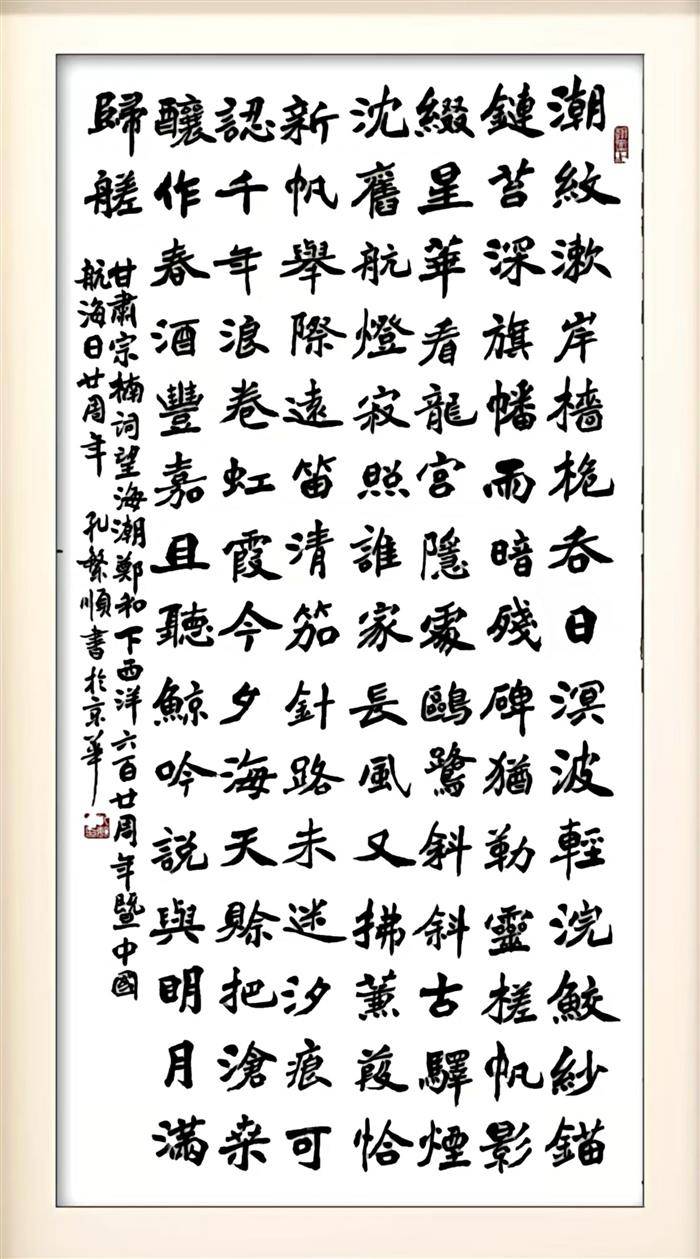 潮紋漱岸檣桅吞日溟波輕浣鮫紗錨
鏈苔深旗幡雨暗殘碑猶勒靈槎帆影
綴星華看龍宮隱處鷗鷺斜斜古驛煙
沈舊航燈寂照誰家長風又拂蒹葭恰
新帆舉際遠笛清笳針路未迷汐痕可
認千年浪卷虹霞今夕海天賒把滄桑
釀作春酒豐嘉且聽鯨吟說與明月滿
歸艖
甘肅宗楠詞望海潮鄭和下西洋六百廿周年暨中國
航海日廿周年 孔繁順書於京華